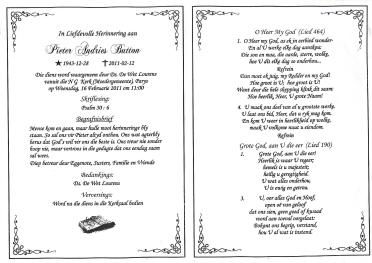 In Liefdevolle Herinnering aan
Pieter Andries Button
★ 1943-12-28 ✝ 2011-02-12
Die diens word waargeneem deur Ds. De Wet Lourens
vanuit die N G Kerk (Moedergemeente), Parys
op Woensdag, 16 Februarie 2011 om 11:00
Skriflesing:
Psalm 30 : 6
Begrafnisbrief
Mense kom en gaan, maar hulle mooi herinneringe bly
staan. So sal ons vir Pieter altyd onthou. Ons wat agterbly
berus dat God's wil vir ons die beste is. Ons treur nie sonder
hoop nie, maar vertrou in die geloof dat ons eendag saam
sal wees.
Diep betreur deur Eggenote, Susters, Familie en Vriende
Bedankings:
Ds. De Wet Lourens
Verversings:
Word na die diens in die Kerksaal bedien
O Heer My God (Lied 464)
1. O Heer my God, as ek in eerbied wonder
En al U werke elke dag aanskou:
Die son en maan, die aarde, sterre, wolke,
hoe U dit elke dag so onderhou...
Refrein
Dan moet ek juig, my Redder en my God!
Hoe groot is U; hoe groot is U!
Want deur die hele skepping klink dit saam
Hoe heerlik, Heer, U grote Naam!
2. U maak ons deel van al u grootste werke.
U laat ons bid, Heer, dat u ryk mag kom.
En kom U weer in heerlikheid op wolke,
maak U volkome naut u eiendom.
Refrein
Grote God, aan U die eer (Lied 190)
1. Grote God, aan U die eer!
Heerlik is waar U regeer;
hemels is u majesteit;
heilig u geregtigheid.
U wat alles onderhou,
U is enig en getrou.
3. U, oor alles God en Hoof,
open of van geloof
dat ons sien, geen goed of kwaad
word aan toeval oorgelaat:
Bokant ons begrip, verstand,
hou U al wat is instand.